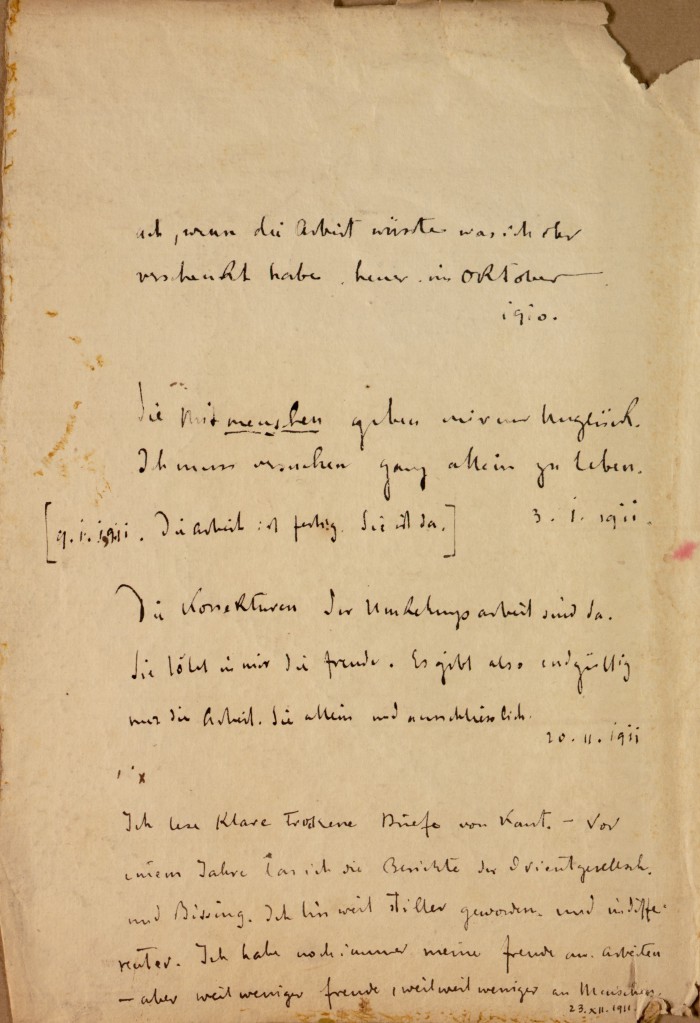 ach, wenn die Arbeit wüsste was ich ihr
verschenkt habe heuer im Oktober
1910.
Die Mitmenschen geben mir nur Unglück.
Ich muss versuchen ganz allein zu leben.
3. I. 1911.
[9. I. 1911. Die Arbeit ist fertig. Sie ist da.]
Die Korrekturen der Umkehrungsarbeit sind da.
Sie tötet in mir die Freude. Es gibt also endgültig
nur die Arbeit. Sie allein und ausschliesslich.
20. II. 1911
Ich lese klare trockene Briefe von Kant. – Vor
einem Jahre las ich die Berichte der Orientgesellsch.
und Bissing. Ich bin weit stiller geworden. und indiffe-
renter. Ich habe noch immer meine Freude am Arbeiten
– aber weit weniger Freude, weit weit weniger an Menschen.
23. XII. 1911.